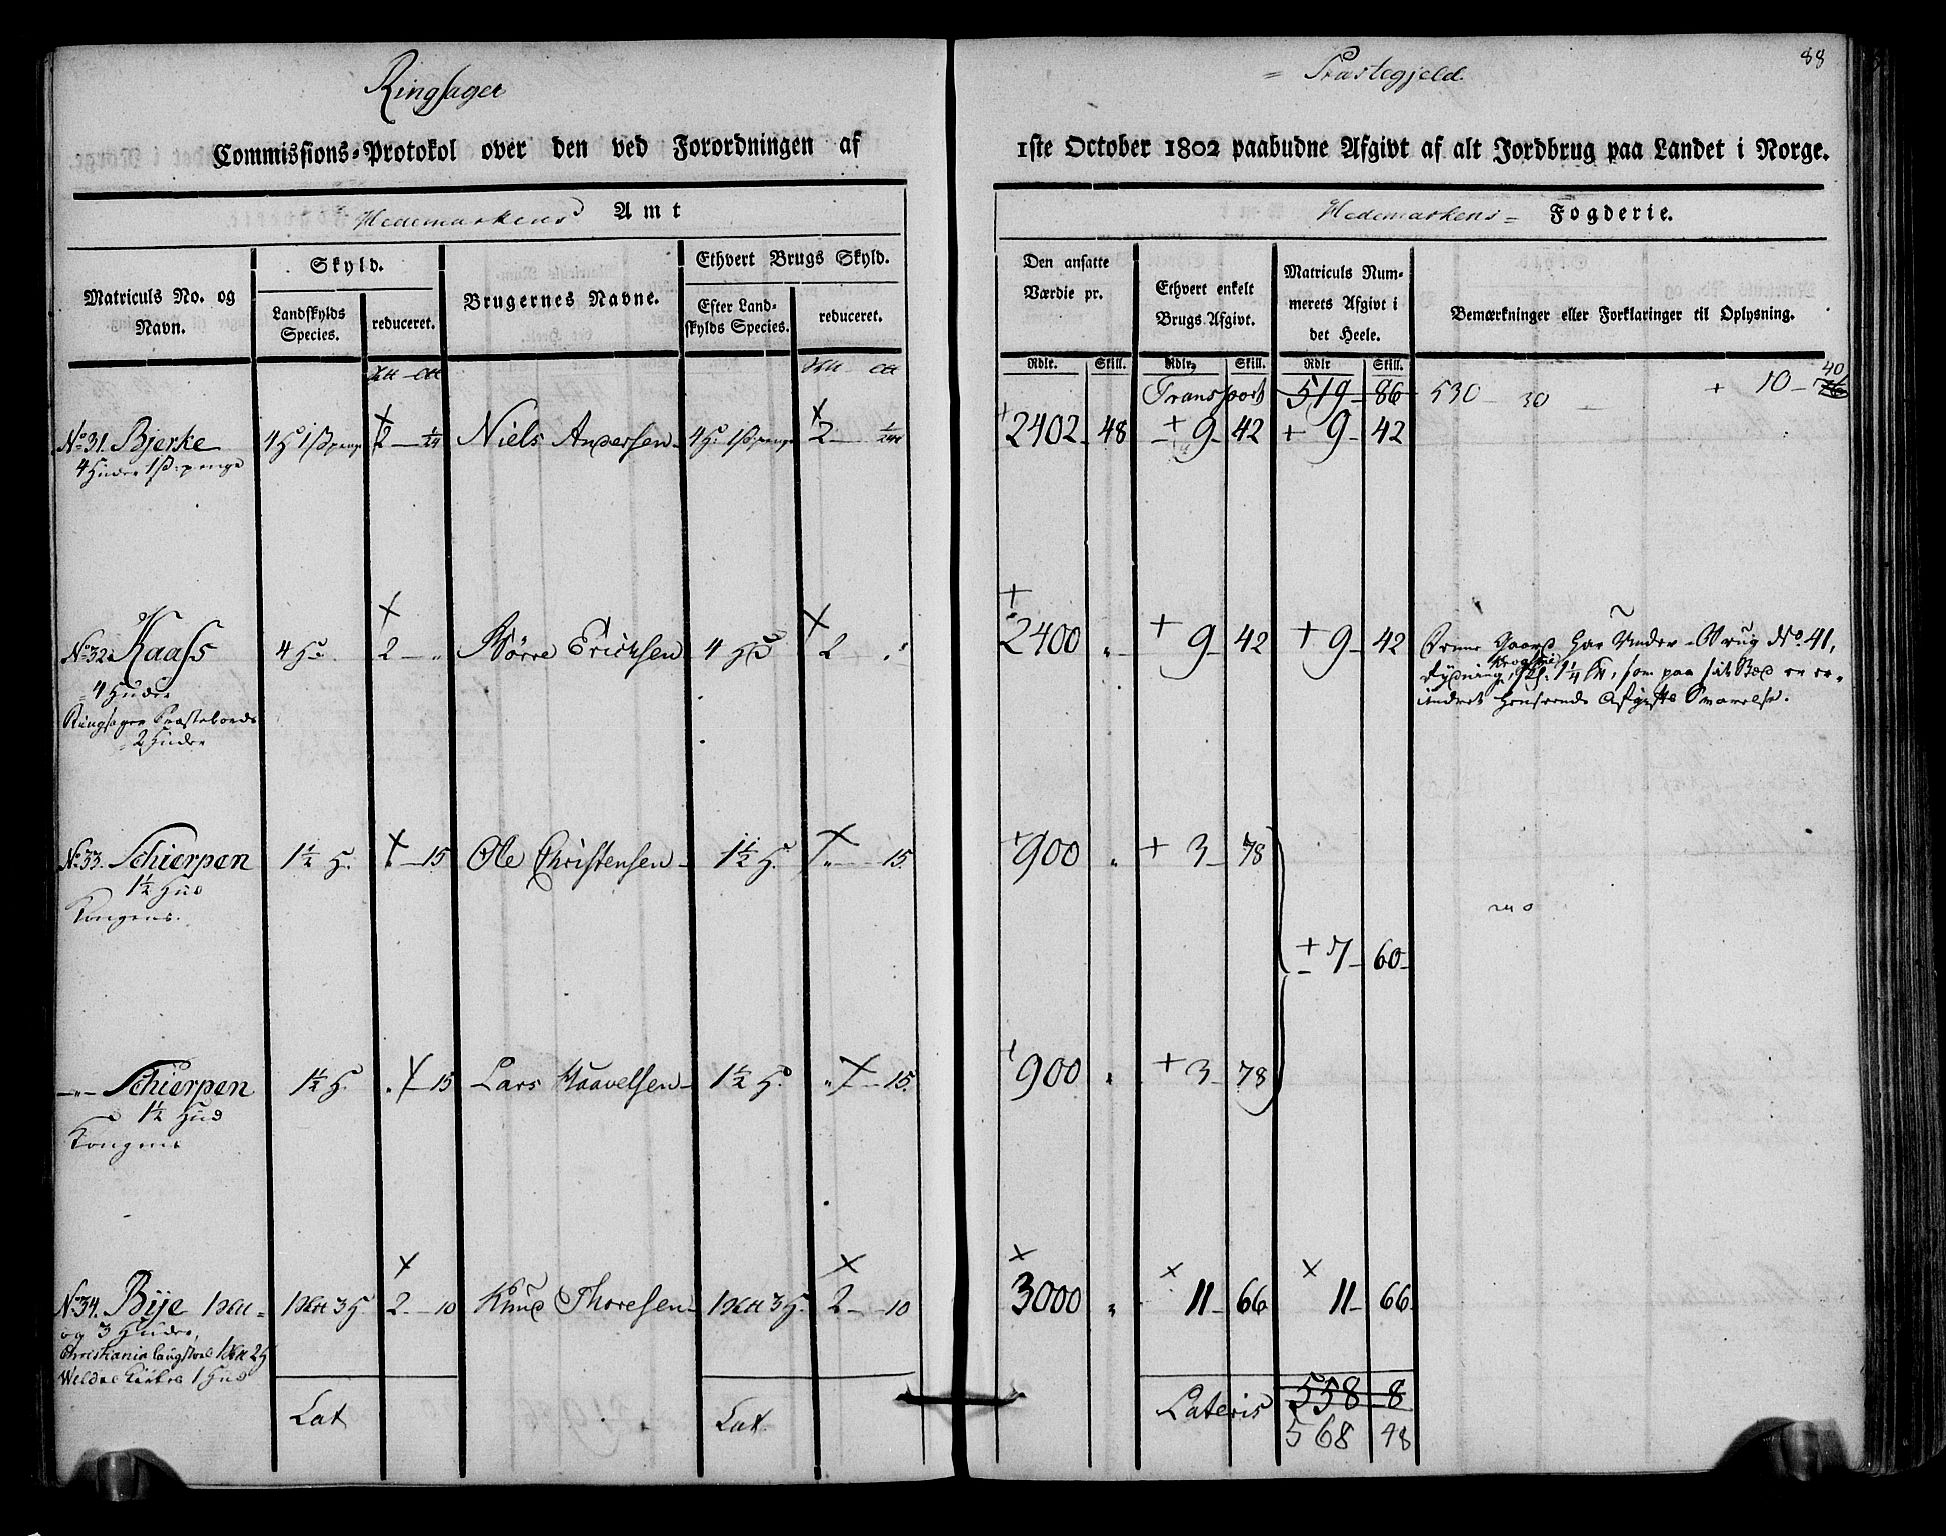 88
Ringsager = Præstegjeld.
Commissions-Protokol over den ved Forordningen af 1ste October 1802 paabudne Afgivt af alt Jordbrug paa Landet i Norge.
Hedemarkens Amt
Hedemarkens = Fogderie.
Matriculs No. og Navn.
Skyld.
Landskylds Species.
reduceret.
Brugernes Navne.
Ethvert Brugs Skyld.
Efter Landskylds Species.
reduceret.
Den ansatte Værdie pr.
Ethvert enkelt Brugs Afgivt.
Matriculs Nummerets Afgivt i det Heele.
Bemærkninger eller Forklaringer til Oplysning.
Rdlr. Skill. Rdlr. Skill. Rdlr Skill.
Transport 519 - 86 530 - 30 + 10 - 40
No 31. Bjerke 2 Niels Andersen 2 + 2402 - 48 + 9 - 42 + 9 - 42
4 Huder 1 ß penge
No 32. Kaass 4 H 2 - " Börre Erichsen 4 H 2 " + 2400 " + 9 - 42 + 9 - 42 Denne Gaard har Under Brug No 41,
4 Huder
Ringsager Præstebords
2 Huder
No 33. Schierpen 1½ H. 15 Ole Christensen 1½ H. " - 15. + 900 " + 3 - 78
1½ Hud
Kongens.
+ 7 - 60
-"- Schierpen 1½ H. " - 15 Lars Haavelsen 1½ H. " - 15. + 900 " + 3 - 78
1½ Hud
Kongens
No 34. Bije 2 - 10 Knud Thoresen 2 - 10 3000 " 11 - 66 11 - 66
og 3 Huder,
1 Hud
Lat Lat. Lateris 558 - 8
568 48